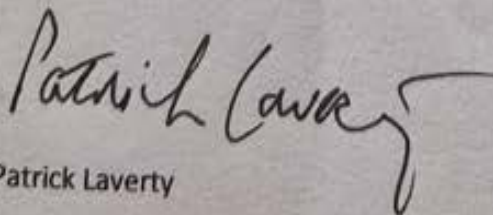 Patrick Laverty
Patrick Laverty